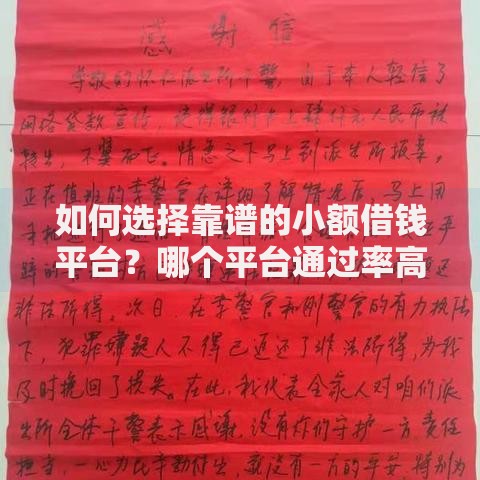 感谢信
尊敬的怀仁派出所干警,由于本人轻信了
网络贷款宣传,使得银行卡上肆仟元人民币被
转出,不翼而飞。情急之下马上到派出所报案。
正在值班的李警官在详细了解情况后,马上用
手机
如何选择靠谱的小额借钱
平台?哪个平台通过率高
非法所得。次日,在李警官和刚警官的有力执法
下,犯罪嫌疑人不得已返还了非法所得,为我
及时挽回了损失。在此,我代表全家人对咱们派
出所全体干警表示感谢,没有你们守护一方,责任
担当,一心为民辛勤付出,就没有一方的平安,特别为